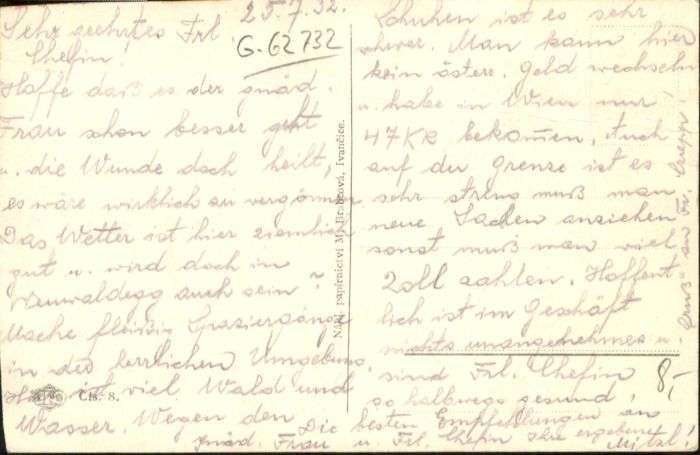 25.7.32.
Sehr geehrtes Frl.
Chefin!
G. 62732
Hoffe daß es der gnäd.
Frau schon besser geht
u. die Wunde doch heilt,
es wäre wirklich zu vergönnen
Das Wetter ist hier ziemlich
gut u. wird doch in
Neuwaldegg auch sein?
Mache fleißig Spaziergänge
in der herrlichen Umgebung,
hier ist viel Wald und
Wasser. Wegen den
Schuhen ist es sehr
schwer. Man kann hier
kein österr. Geld wechseln
u. habe in Wien nur
47 Kč bekom̄en. Auch
auf der Grenze ist es
sehr streng muß man
neue Sachen anziehen
sonst muß man viel
Zoll zahlen. Hoffent
lich ist im Geschäft
nichts unangenehmes u.
sind Frl. Chefin
so halbwegs gesund.
Die besten Empfehlungen an
gnäd. Frau u. Frl. Chefin Ihre ergebene
Mitzl!
an Fr.
8,-
Nákl. papírnictví M. Ivančice.
Čís. 8.